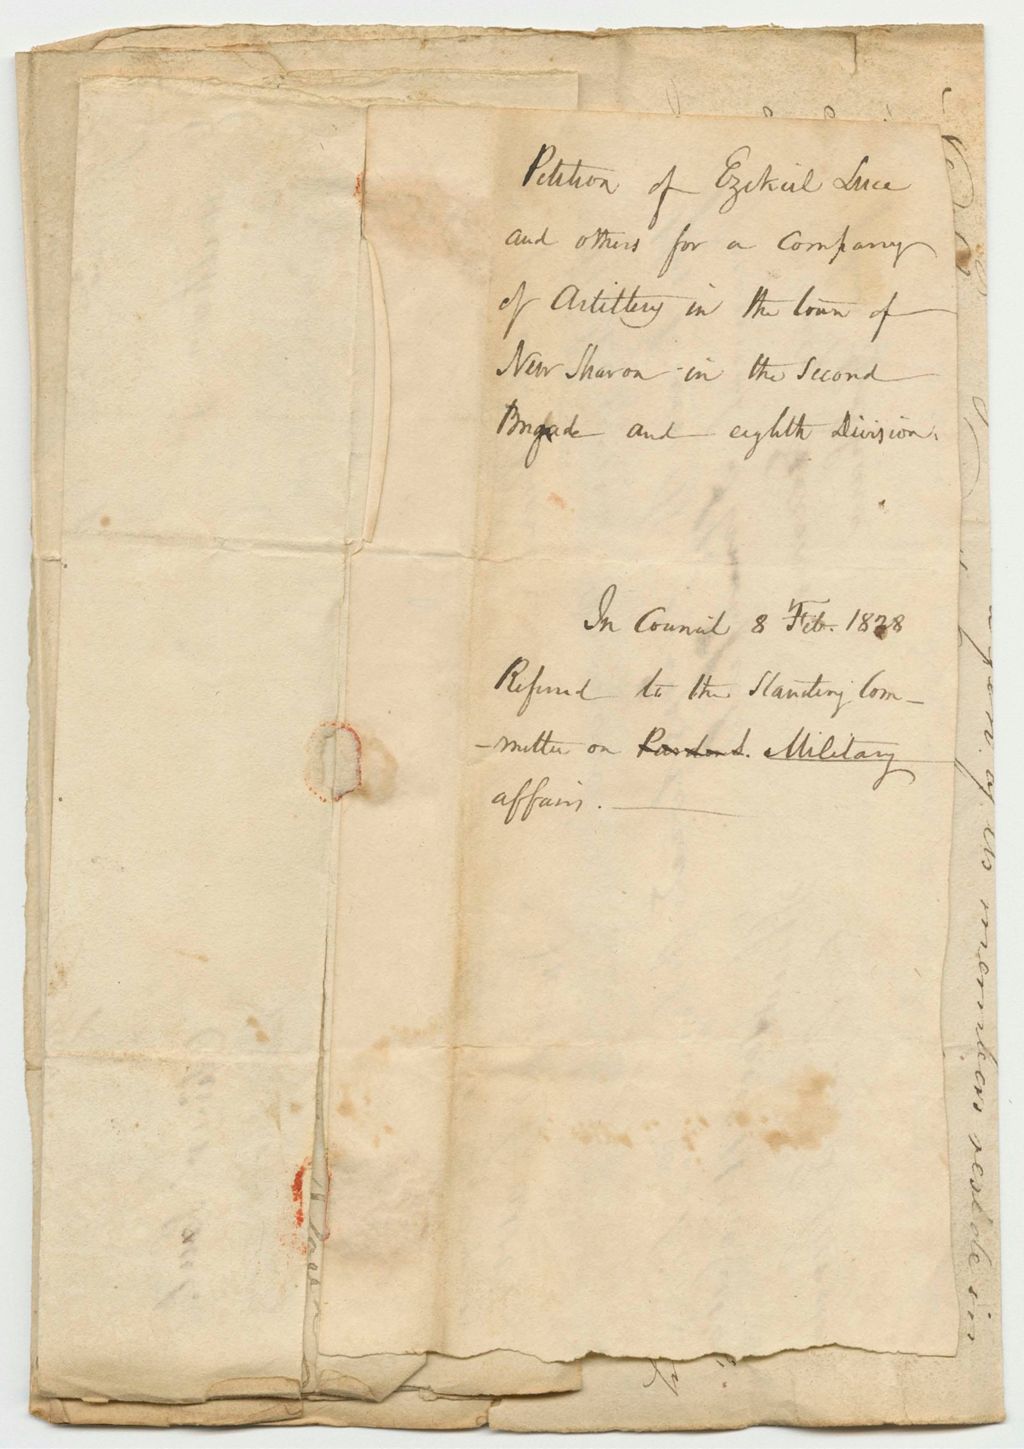 Petition of Ezekiel Luce
and others for a Company
of Artillery in the town of
New Sharon in the Second
Brigade and eighth Division.
In Council 8 Feb. 1828
Referred to the Standing Com-
-mittee on Pardons. Military
affairs.
of its members reside in